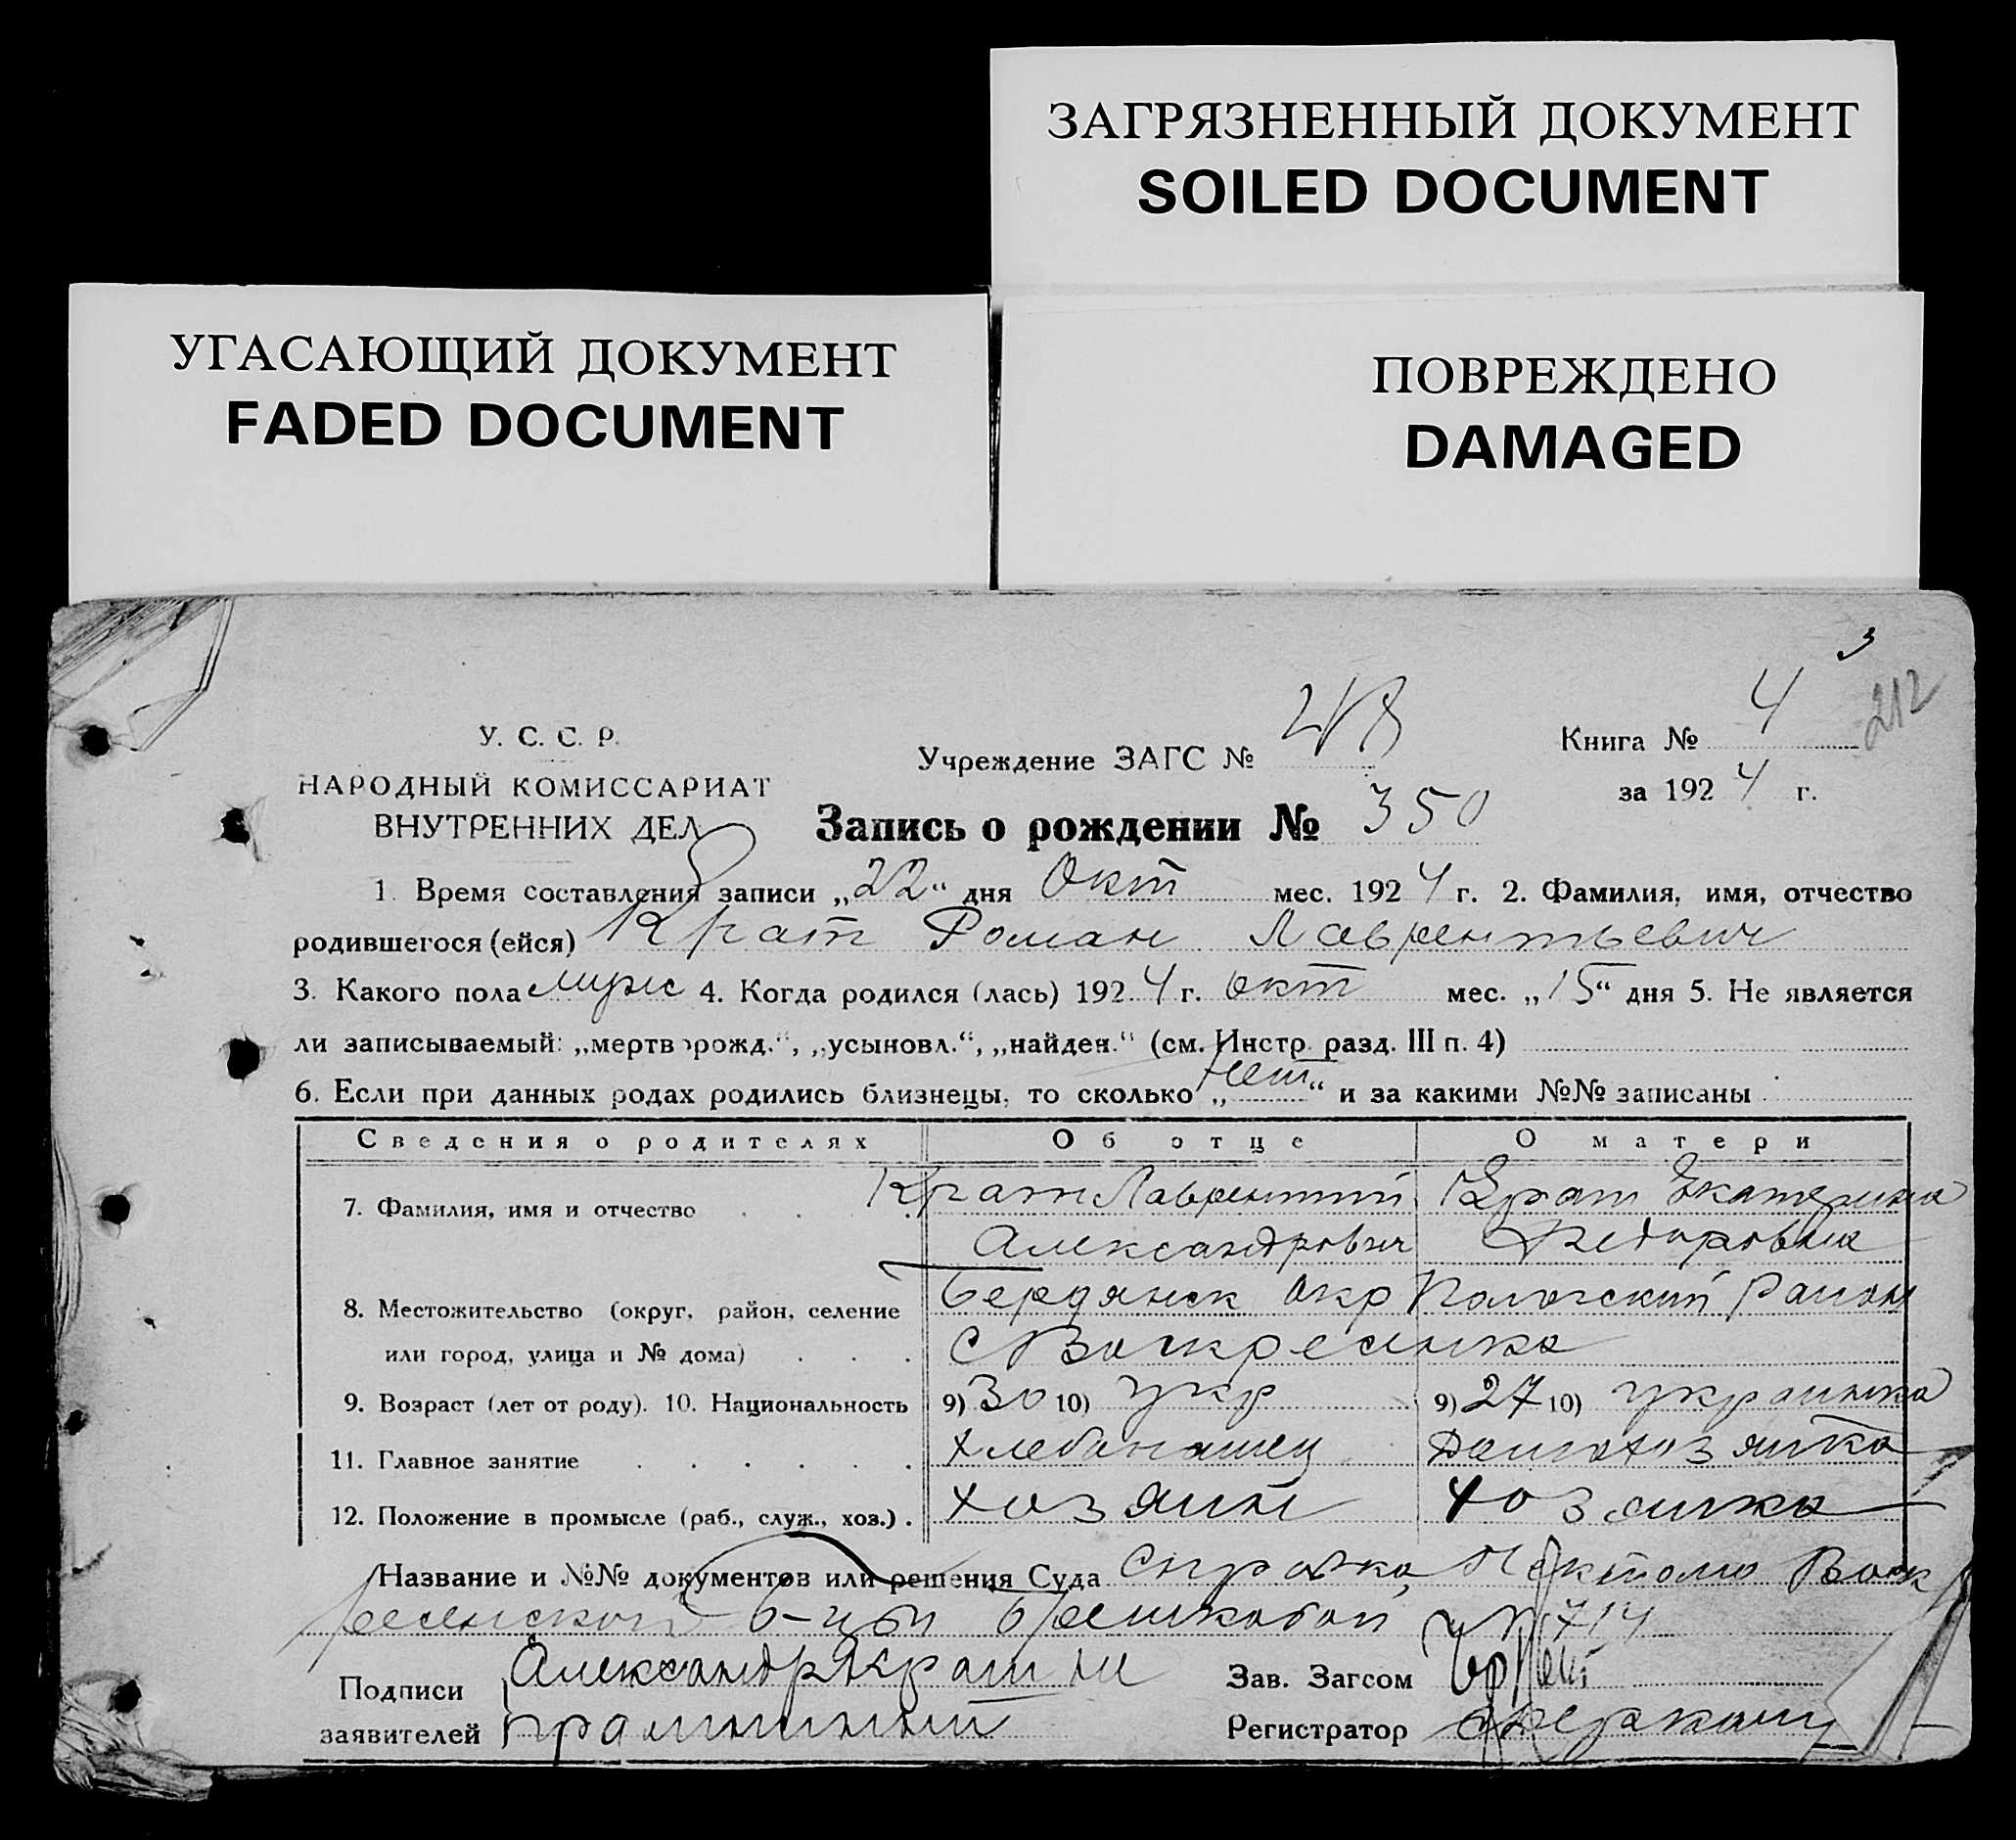 ЗАГРЯЗНЕННЫЙ ДОКУМЕНТ
SOILED DOCUMENT
УГАСАЮЩИЙ ДОКУМЕНТ
FADED DOCUMENT
ПОВРЕЖДЕНО
DAMAGED
3
212
У. С. С. Р.
НАРОДНЫЙ КОМИССАРИАТ
ВНУТРЕННИХ ДЕЛ
Учреждение ЗАГС №
Книга № 4
за 1924 г.
Запись о рождении № 350
1. Время составления записи „22“ дня Окт мес. 1924 г. 2. Фамилия, имя, отчество
родившегося (ейся) Крат Роман Лаврентьевич
3. Какого пола мужс 4. Когда родился (лась) 1924 г. окт мес. „15“ дня 5. Не является
ли записываемый: „мертворожд.“, „усыновл.“, „найден.“ (см. Инстр. разд. III п. 4)
6. Если при данных родах родились близнецы, то сколько „нет“ и за какими №№ записаны
Сведения о родителях Об отце О матери
7. Фамилия, имя и отчество Крат Лаврентий Крат Екатерина
Александрович Федоровна
8. Местожительство (округ, район, селение Бердянск окр Пологский Район
или город, улица и № дома) с Воскресенка
9. Возраст (лет от роду). 10. Национальность 9) 30 10) укр 9) 27 10) украинка
11. Главное занятие хлебопашец Домохозяйка
12. Положение в промысле (раб., служ., хоз.) хозяин хозяйка
Название и №№ документов или решения Суда Справка, Воск
ресенской № 714
Подписи Александр Крат не
заявителей грамотный
Зав. Загсом
Регистратор